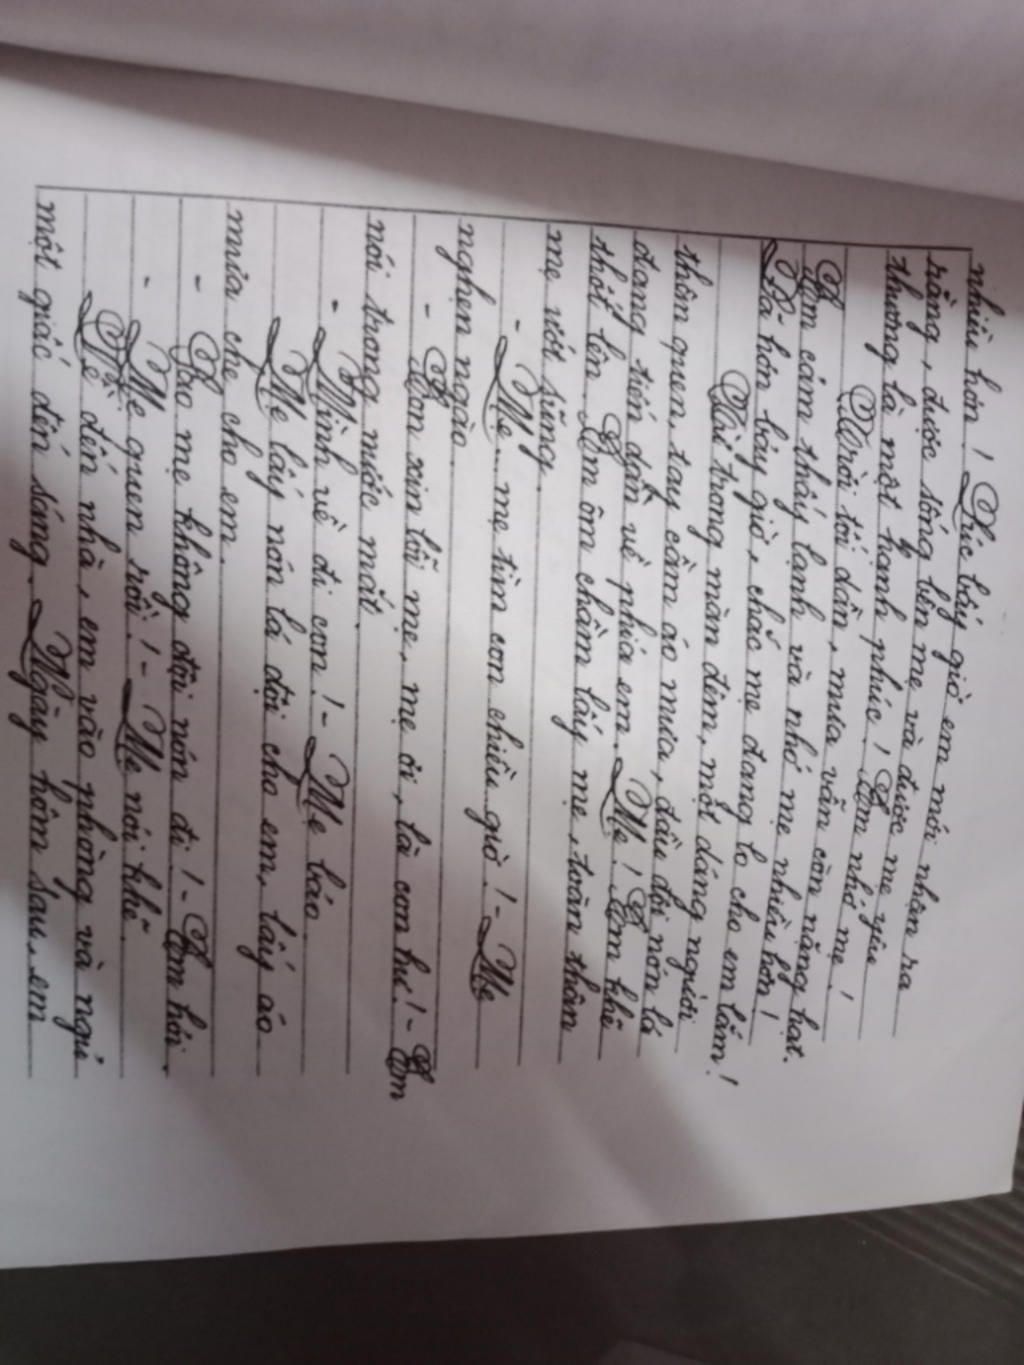 nhiều hơn! Lúc bấy giờ em mới nhận ra
rằng, được sống bên mẹ và được mẹ yêu
thương là một hạnh phúc! Em nhớ mẹ!
Trời tối dần, mưa vẫn còn nặng hạt.
Em cảm thấy lạnh và nhớ mẹ nhiều hơn!
Đã hơn bảy giờ, chắc mẹ đang lo cho em lắm!
Xa trong màn đêm, một dáng người
thân quen, tay cầm áo mưa, đầu đội nón lá
đang tiến dần về phía em. Mẹ! Em khẽ
thốt lên. Em ôm chầm lấy mẹ, toàn thân
mẹ ướt sũng.
- Mẹ... mẹ tìm con chiều giờ! - Mẹ
nghẹn ngào.
- Con xin lỗi mẹ, mẹ ơi, là con hư! - Em
nói trong nước mắt.
- Mình về đi con! - Mẹ bảo.
Mẹ lấy nón lá đội cho em, lấy áo
mưa che cho em.
- Sao mẹ không đội nón đi! - Em hỏi.
- Mẹ quen rồi! - Mẹ nói khẽ.
Về đến nhà, em vào phòng và ngủ
một giấc đến sáng. Ngày hôm sau, em